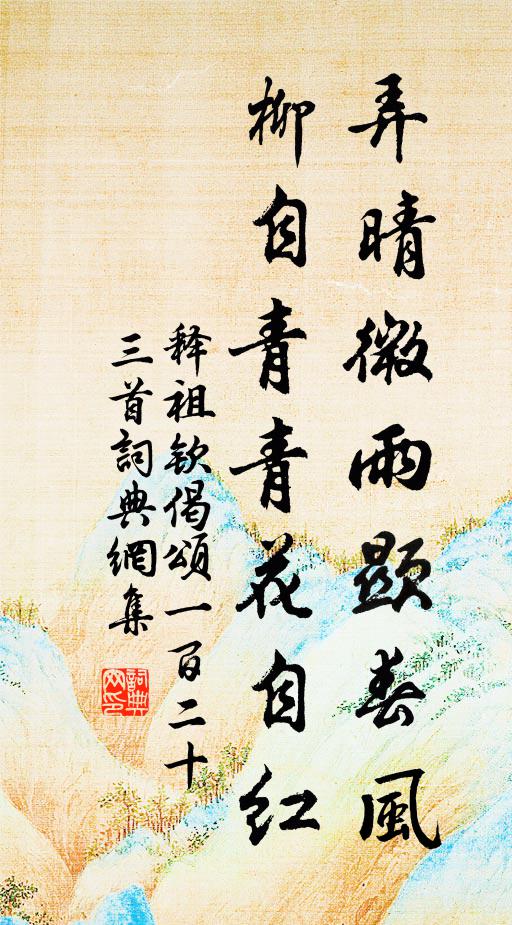 弄晴微雨顯春風
柳自青青花自紅
释祖欽偈頌一百二十
三首詞典網集
詞典
网印